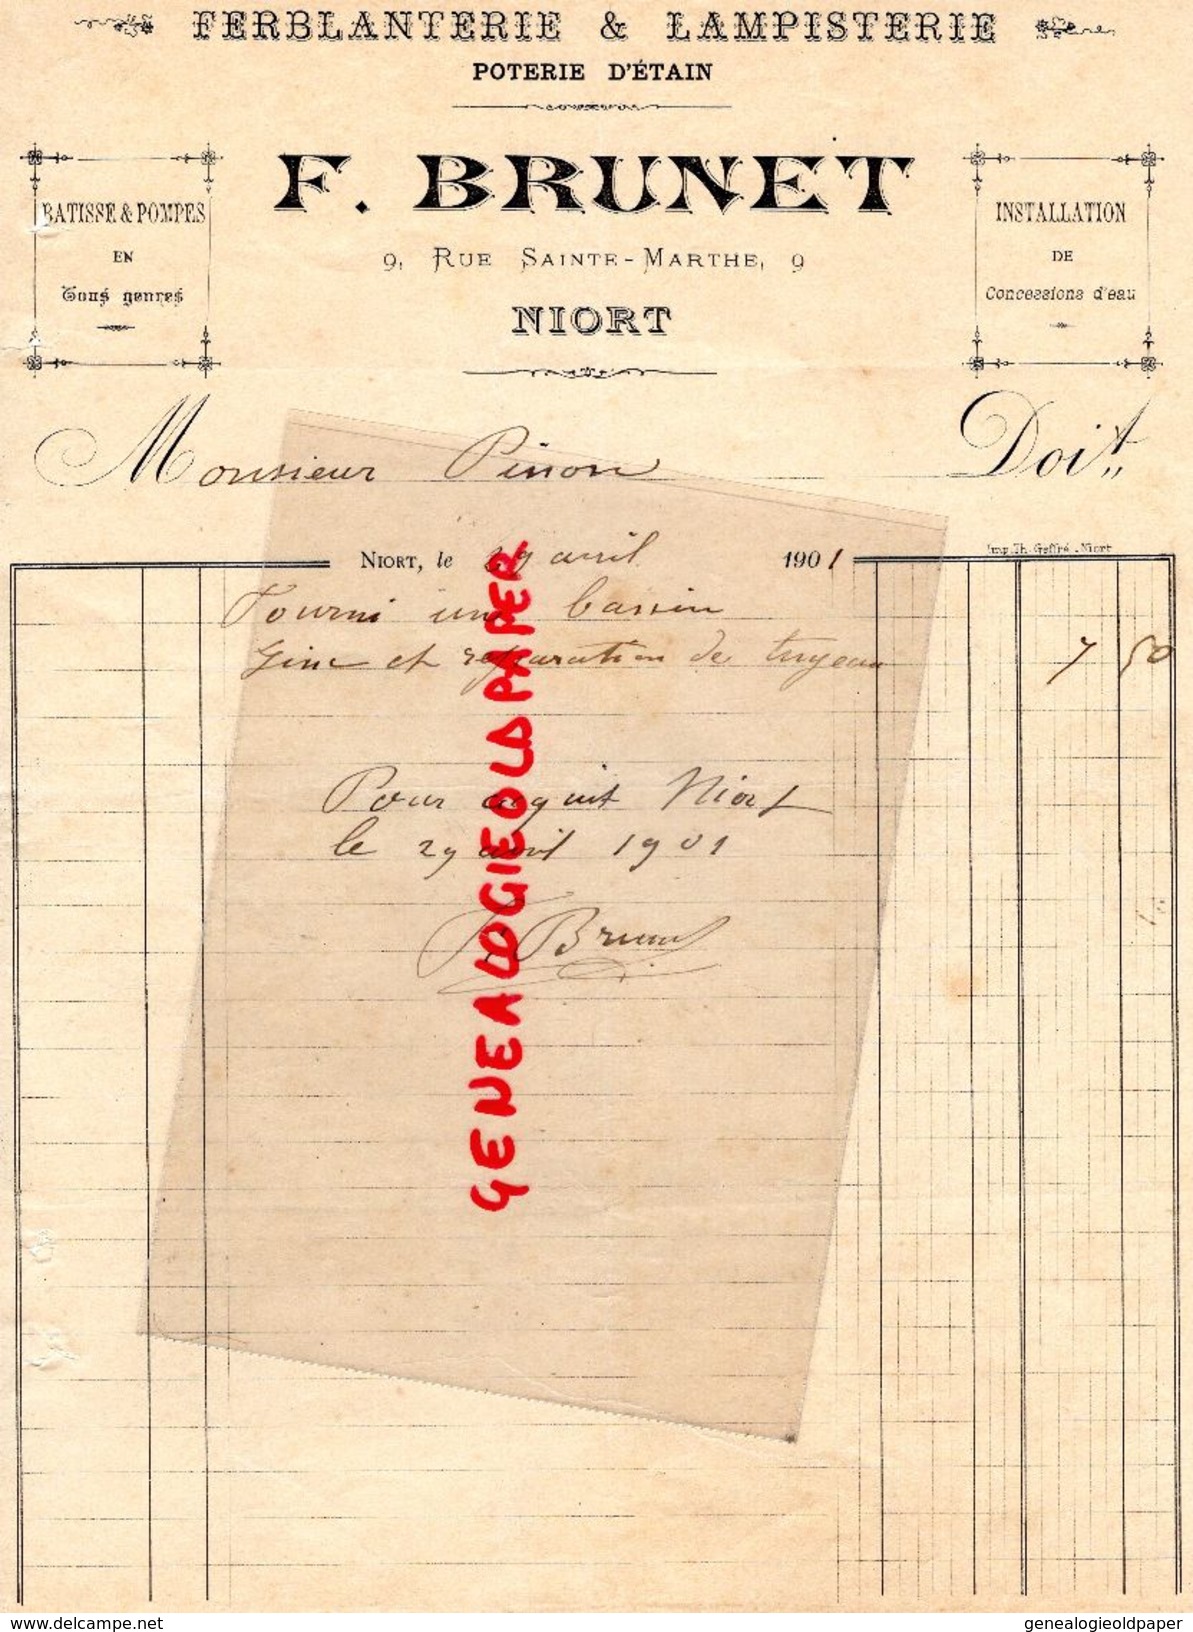 FERBLANTERIE & LAMPISTERIE
POTERIE D'ÉTAIN
F. BRUNET
9, RUE SAINTE-MARTHE, 9
NIORT
BATISSE & POMPES
EN
Tous genres
INSTALLATION
DE
Concessions d'eau
Monsieur Pinon Doit
Imp. Th. Geffré. Niort
NIORT, le 29 avril 1901
Fourni un bassin
Zinc et reparation de tuyeau 7 50
Pour acquit Niort
le 29 avril 1901
F. Brunet
GENEALOGIEOLDPAPER
www.delcampe.net
genealogieoldpaper